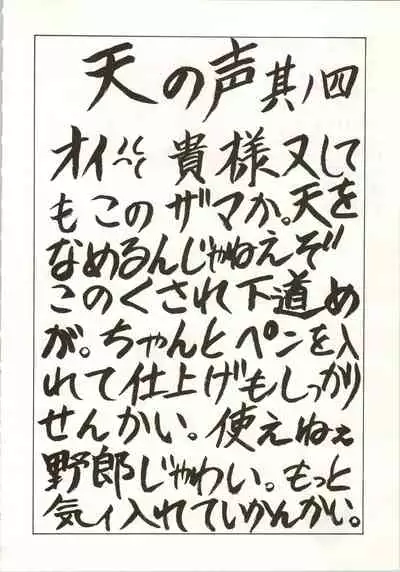 天の声 其ノ四
オイ〱 貴様又して
もこのザマか。天を
なめるんじゃねえぞ
このくされ下道め
が。ちゃんとペンを入
れて仕上げもしっかり
せんかい。使えねぇ
野郎じゃわい。もっと
気ィ入れていかんかい。